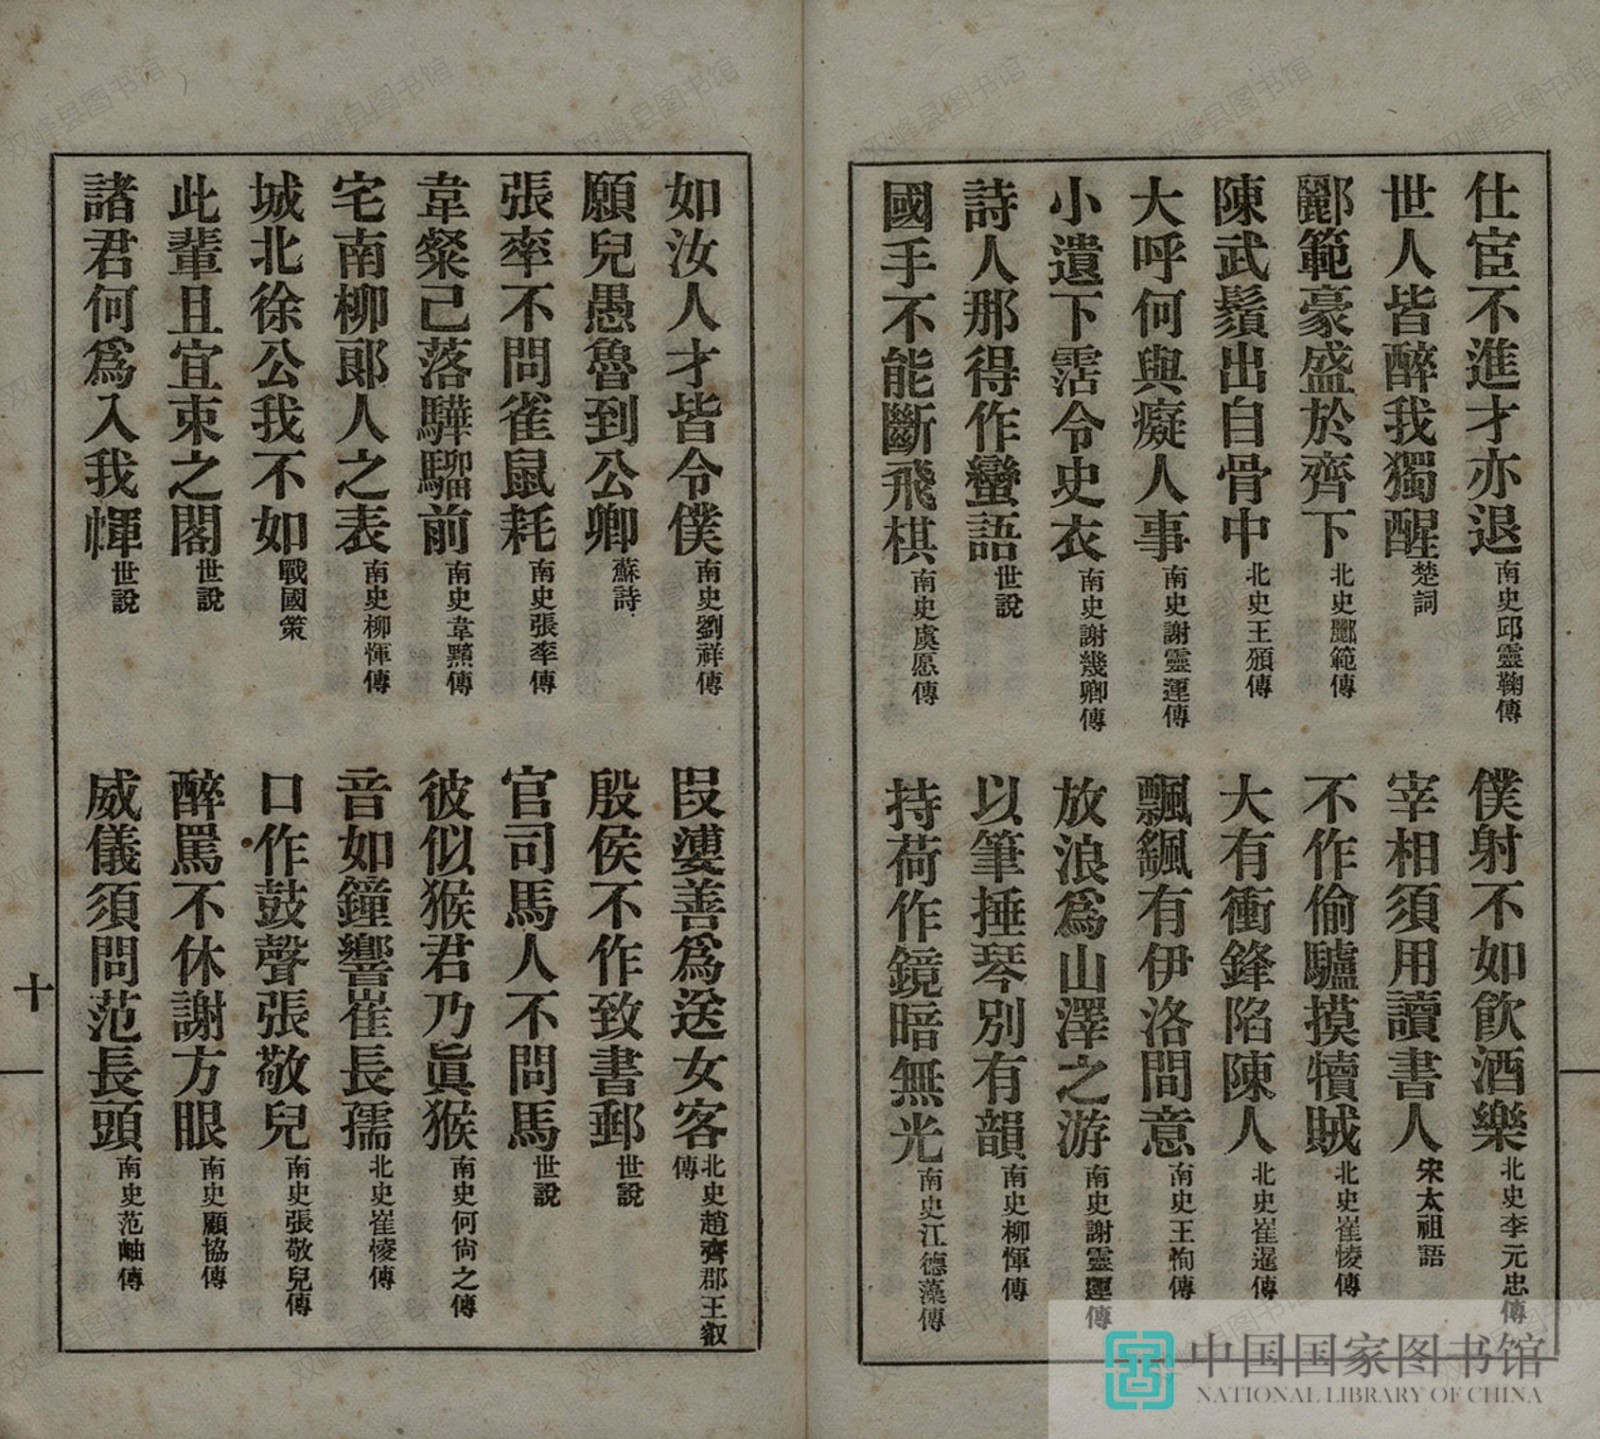 仕宦不進才亦退 南史邱靈鞠傳 僕射不如飲酒樂 北史李元忠傳
世人皆醉我獨醒 楚詞 宰相須用讀書人 宋太祖語
酈範豪盛於齊下 北史酈範傳 不作偷驢摸犢賊 北史崔㥄傳
陳武鬚出自骨中 北史王頒傳 大有衝鋒陷陳人 北史崔暹傳
大呼何與癡人事 南史謝靈運傳 飄颻有伊洛間意 南史王恂傳
小遺下霑令史衣 南史謝幾卿傳 放浪爲山澤之游 南史謝靈運傳
詩人那得作蠻語 世說 以筆捶琴別有韻 南史柳惲傳
國手不能斷飛棋 南史虞愿傳 持荷作鏡暗無光 南史江德藻傳
如汝人才皆令僕 南史劉祥傳 善爲送女客 北史趙齊郡王叡傳
願兒愚魯到公卿 蘇詩 殷侯不作致書郵 世說
張率不問雀鼠耗 南史張率傳 官司馬人不問馬 世說
韋粲已落驊騮前 南史韋黯傳 彼似猴君乃眞猴 南史何尙之傳
宅南柳郎人之表 南史柳惲傳 音如鐘響崔長孺 北史崔㥄傳
城北徐公我不如 戰國策 口作鼓聲張敬兒 南史張敬兒傳
此輩且宜束之閣 世說 醉罵不休謝方眼 南史顧協傳
諸君何爲入我㡓 世說 威儀須問范長頭 南史范岫傳
十
双峰县图书馆
中国国家图书馆
NATIONAL LIBRARY OF CHINA